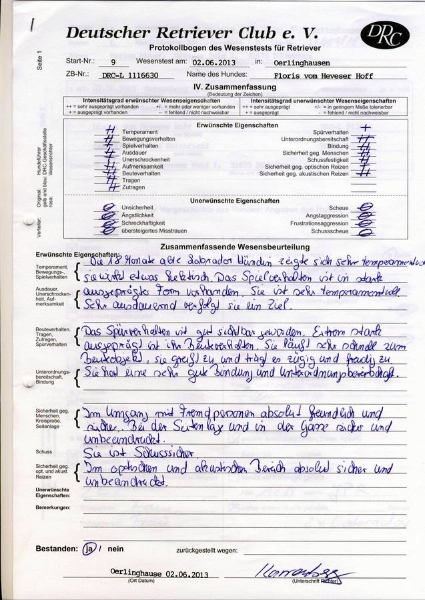 Deutscher Retriever Club e. V.
DRC
Protokollbogen des Wesenstests für Retriever
Seite 1
Start-Nr.: 9 Wesenstest am: 02.06.2013 in: Oerlinghausen
ZB-Nr.: DRC-L 1116630 Name des Hundes: Floris vom Heveser Hoff
IV. Zusammenfassung
(Bedeutung der Zeichen)
Intensitätsgrad erwünschter Wesenseigenschaften Intensitätsgrad unerwünschter Wesenseigenschaften
++ = sehr ausgeprägt vorhanden +/- = mehr oder weniger vorhanden ++ = sehr ausgeprägt +/- = in geringem Maße tolerierbar
+ = ausgeprägt vorhanden - = fehlend / nicht nachweisbar + = ausgeprägt - = fehlend / nicht nachweisbar
Erwünschte Eigenschaften
Temperament Spürverhalten +
Bewegungsverhalten Unterordnungsbereitschaft
Spielverhalten Bindung
Ausdauer Sicherheit geg. Menschen
Unerschrockenheit Schussfestigkeit
Aufmerksamkeit Sicherheit geg. optischen Reizen
Beuteverhalten Sicherheit geg. akustischen Reizen
Tragen
Zutragen
Unerwünschte Eigenschaften
Unsicherheit Scheue
Ängstlichkeit Angstaggression
Schreckhaftigkeit Frustrationsaggression
übersteigertes Misstrauen Schussscheue
Zusammenfassende Wesensbeurteilung
Erwünschte Eigenschaften:
Temperament, Bewegungs-, Spielverhalten
Die 18 Monate alte Labrador Hündin zeigte sich sehr temperamentvoll
sie wirkt etwas hektisch. Das Spielverhalten ist in stark
Ausdauer, Unerschrockenheit, Aufmerksamkeit
ausgeprägter Form vorhanden. Sie ist sehr temperamentvoll.
Sehr ausdauernd verfolgt sie ein Ziel.
Beuteverhalten, Tragen, Zutragen, Spürverhalten
Das Spürverhalten ist gut sichtbar geworden. Extrem stark
ausgeprägt ist ihr Beuteverhalten. Sie läuft sehr schnell zum
Beuteobjekt, sie greift zu und trägt es zügig und freudig zu
Unterordnungsbereitschaft, Bindung
Sie hat eine sehr gute Bindung und Unterordnungsbereitschaft.
Sicherheit geg. Menschen, Kreisprobe, Seitenlage
Im Umgang mit Fremdpersonen absolut freundlich und
sicher. Bei der Seitenlage und in der Gasse sicher und
unbeeindruckt.
Schuss
Sie ist Schusssicher
Sicherheit geg. opt. und akust. Reizen
Im optischen und akustischen Bereich absolut sicher und
unbeeindruckt.
Unerwünschte Eigenschaften:
Bemerkungen:
Bestanden: ja / nein zurückgestellt wegen:
Oerlinghause 02.06.2013
(Ort Datum) (Unterschrift Richter)